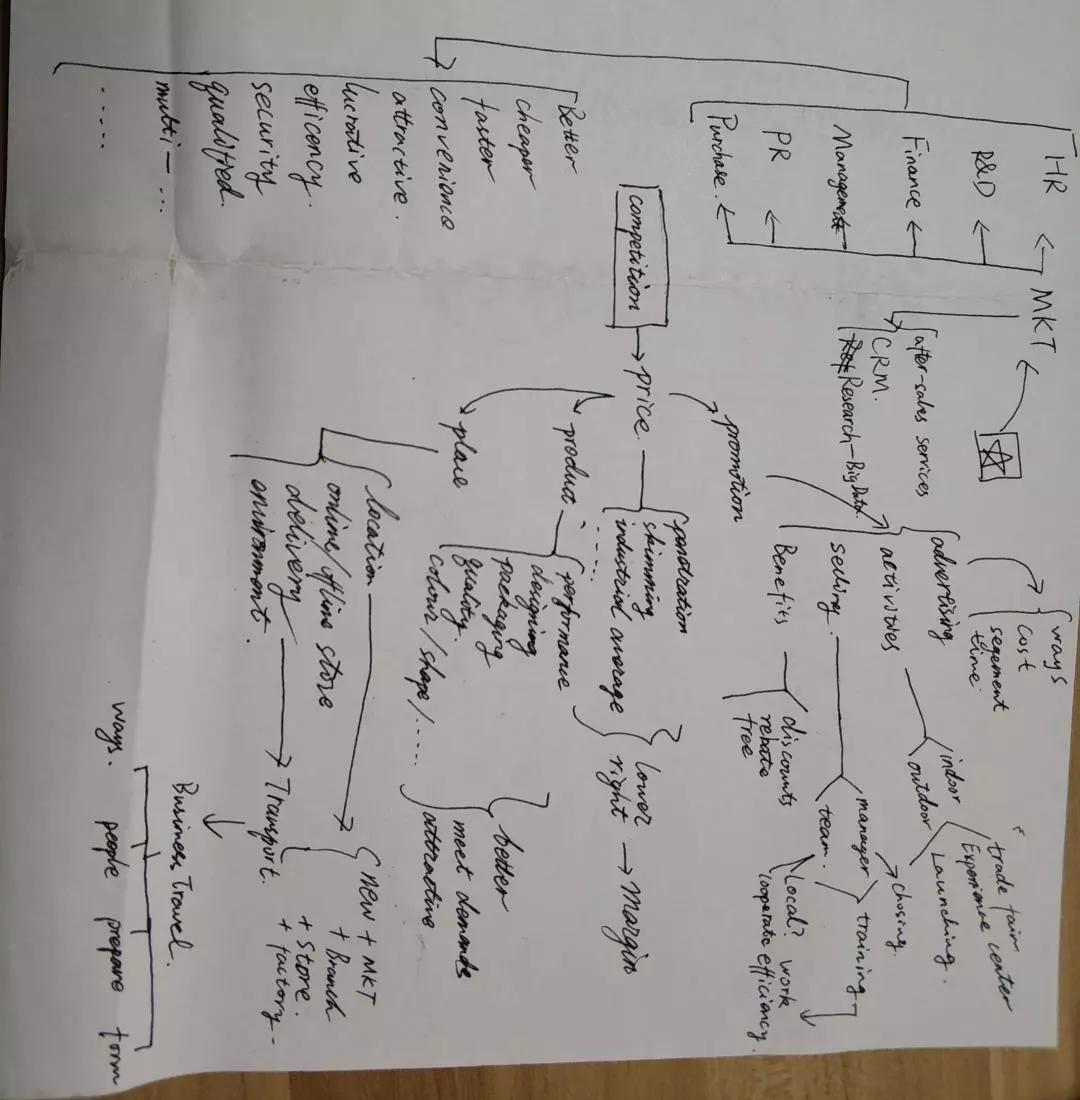 HR ← MKT ← ☆
R&D ←
Finance ←
Management ←
PR ←
Purchase. ←
after-sales services
CRM.
Research-Big Data.
ways
cost
segement
time
advertising
activities
selling.
Benefits
indoor
outdoor
trade fair
Experience center
Launching.
manager
team.
chosing.
training
Local?
work
cooperate efficiency.
discounts
rebate
free
promotion
competition → price
penetration
skimming
industrial average
.....
lower
right → Margin
product
performance
designing
packaging
quality.
colour/shape/....
better
meet demands
attractive
place
location
online/offline store
delivery
environment.
new + MKT
+ Branch
Transport.
+ Store.
+ factory.
Better
cheaper
faster
convenience
attractive.
lucrative
efficency.
security
qualified.
multi-...
.....
Business Travel.
↓
ways. people prepare form